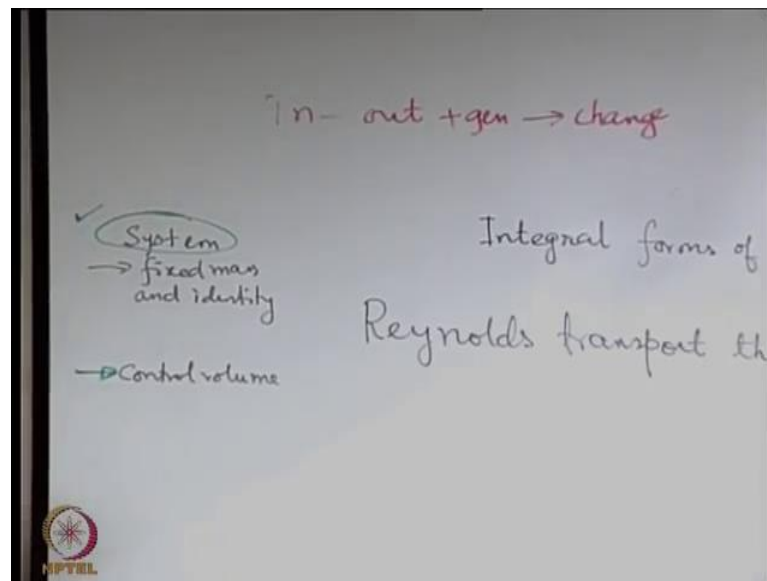 In - out + gen → change
✓ System
→ fixed mass
and identity
→ Control volume
Integral forms of
Reynolds transport th
NPTEL